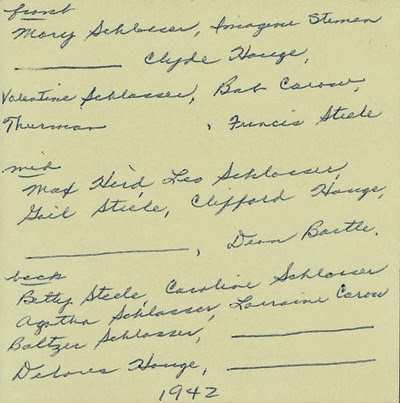 front
Mary Schlosser, Imogene Stemen
________ Clyde Houge,
Valentine Schlosser, Bob Carow,
Thurman , Francis Steele
mid
Max Heid, Leo Schlosser,
Gail Steele, Clifford Houge,
________, Dean Bartle.
back
Betty Steele, Caroline Schlosser
Agatha Schlosser, Lorraine Carow
Baltzer Schlosser, ________
Delores Houge, ________
1942